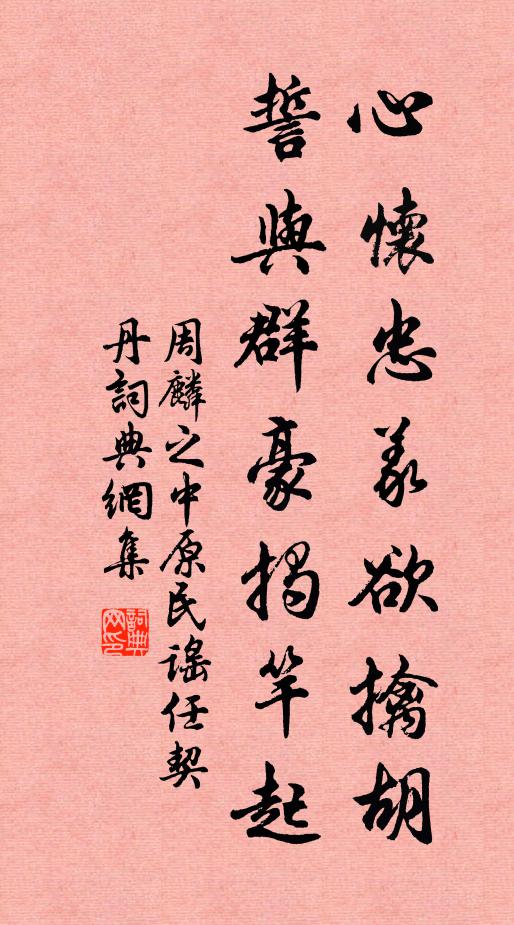 心懷忠義欲擒胡
誓與群豪揭竿起
周麟之中原民謠任契
丹詞典網集
詞典
网印